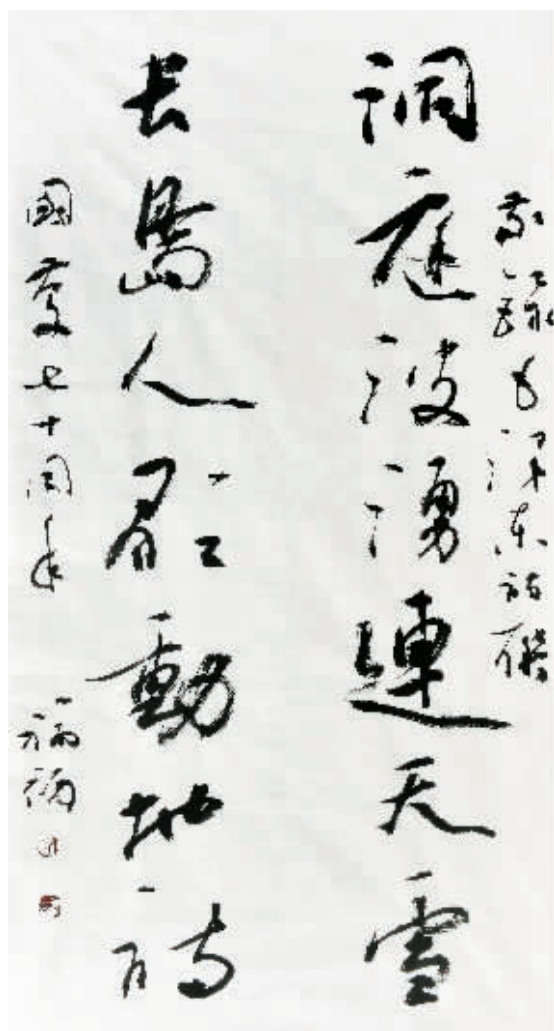 敬錄毛澤东诗联
洞庭波湧連天雪
長島人歌動地诗
國慶七十周年
福